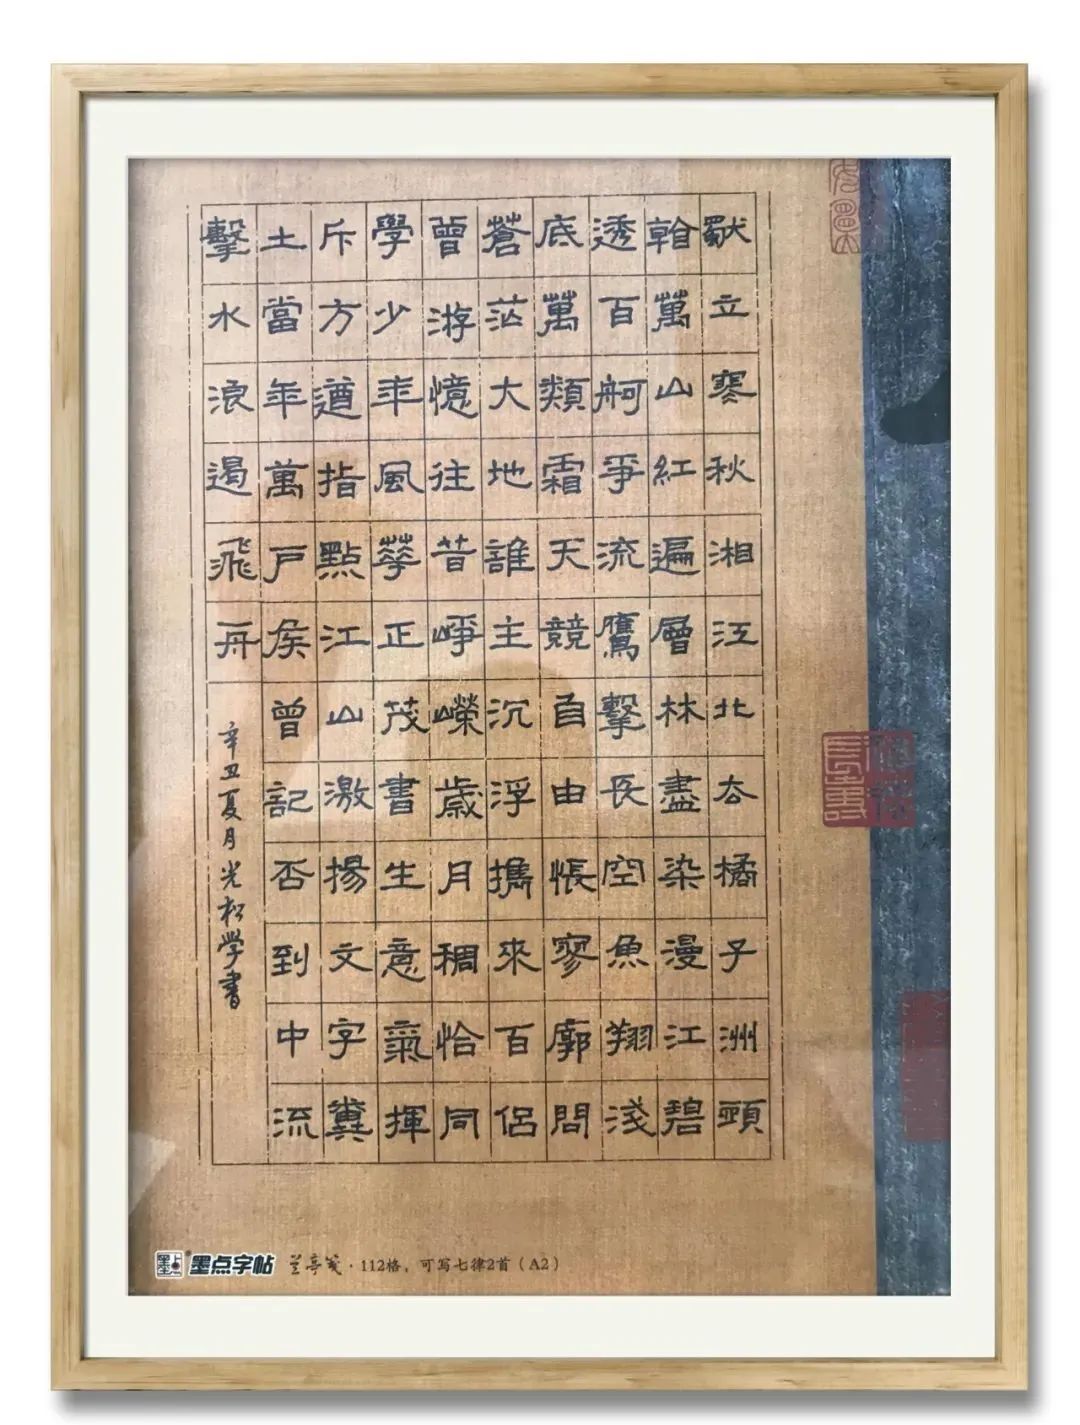 獨立寒秋湘江北去橘子洲頭
看萬山紅遍層林盡染漫江碧
透百舸爭流鷹擊長空魚翔淺
底萬類霜天競自由悵寥廓問
蒼茫大地誰主沉浮攜來百侶
曾游憶往昔崢嶸歲月稠恰同
學少年風華正茂書生意氣揮
斥方遒指點江山激揚文字糞
土當年萬戶侯曾記否到中流
擊水浪遏飛舟
辛丑夏月光松學書
墨点 墨点字帖 兰亭笺·112格，可写七律2首（A2）